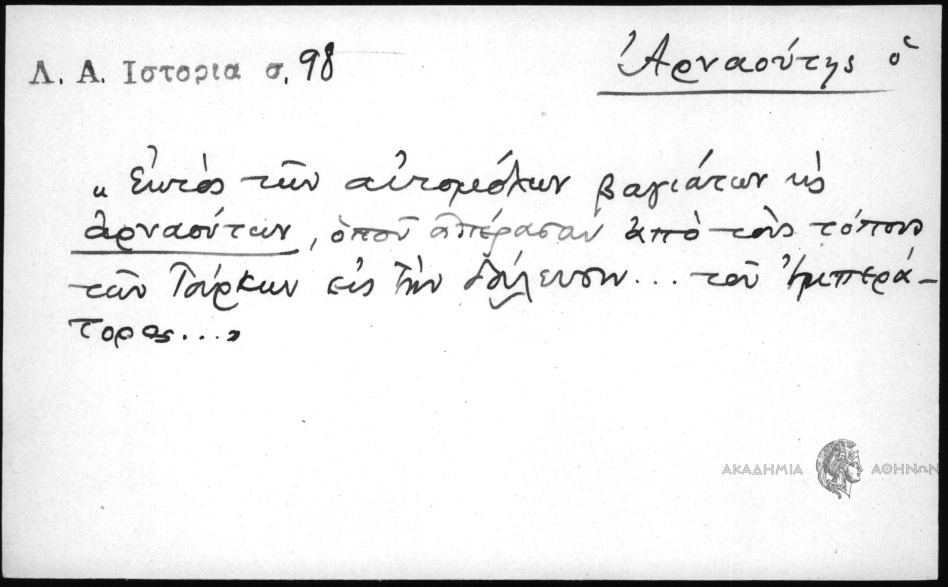 Λ. Α. Ιστορια σ. 98
Ἀρναούτης ὁ
« Ἐκτὸς τῶν αὐτομόλων βαγιάτων κὶς
ἀρναούτων, ὁποῦ ἀπέρασαν ἀπὸ τοὺς τόπους
τῶν Τούρκων εἰς τὴν δούλευσιν... τοῦ Ἰμπερά-
τορος...»
ΑΚΑΔΗΜΙΑ ΑΘΗΝΩΝ